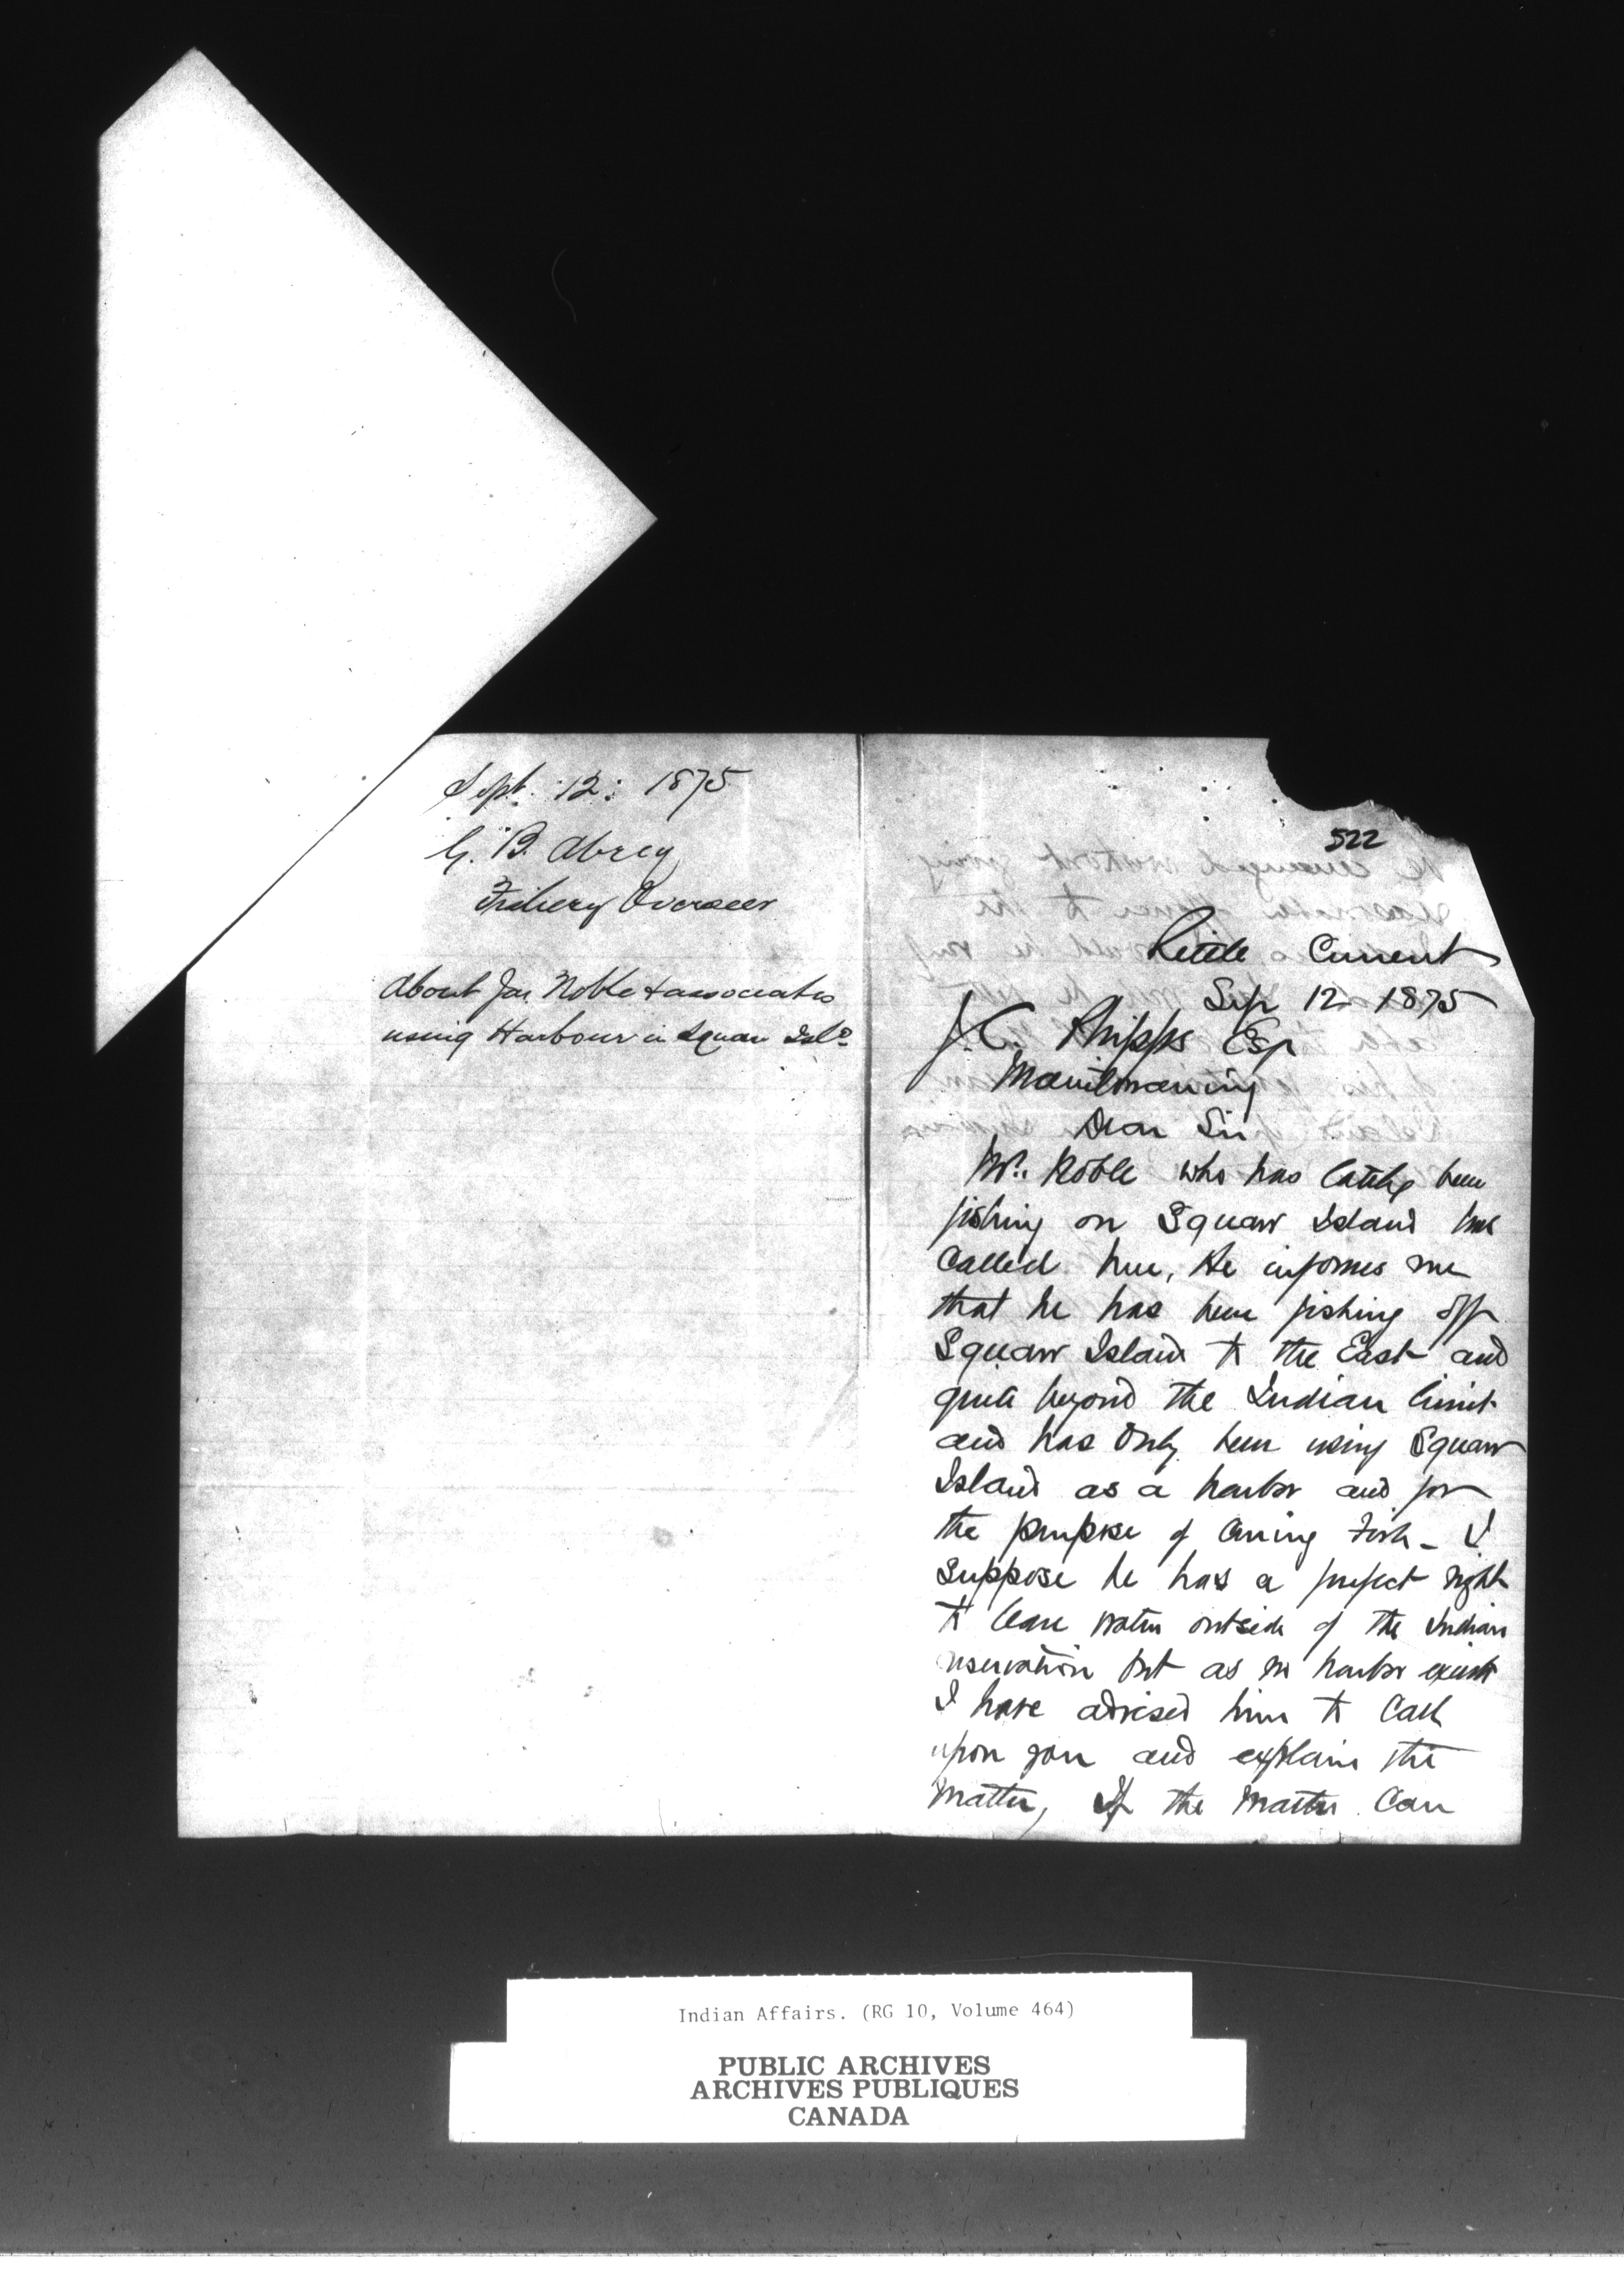 Sept. 12: 1875
G. B. Abrey
Fishery Overseer
About Jas Noble & associates
using Harbour in Squaw Isld
522
Little Current
Sep 12 1875
J.C. Phipps Esq
Manitowaning
Dear Sir
Mr. Noble who has lately been
fishing on Squaw Island has
called here, He informes me
that he has been fishing off
Squaw Island to the East and
quite beyond the Indian limit
and has only been using Squaw
Island as a harbor and for
the purpose of curing Fish - I
suppose he has a perfect right
to lease water outside of the Indian
reservation but as no harbor exists
I have advised him to Call
upon you and explain the
Matter, If the Matter Can
Indian Affairs. (RG 10, Volume 464)
PUBLIC ARCHIVES
ARCHIVES PUBLIQUES
CANADA